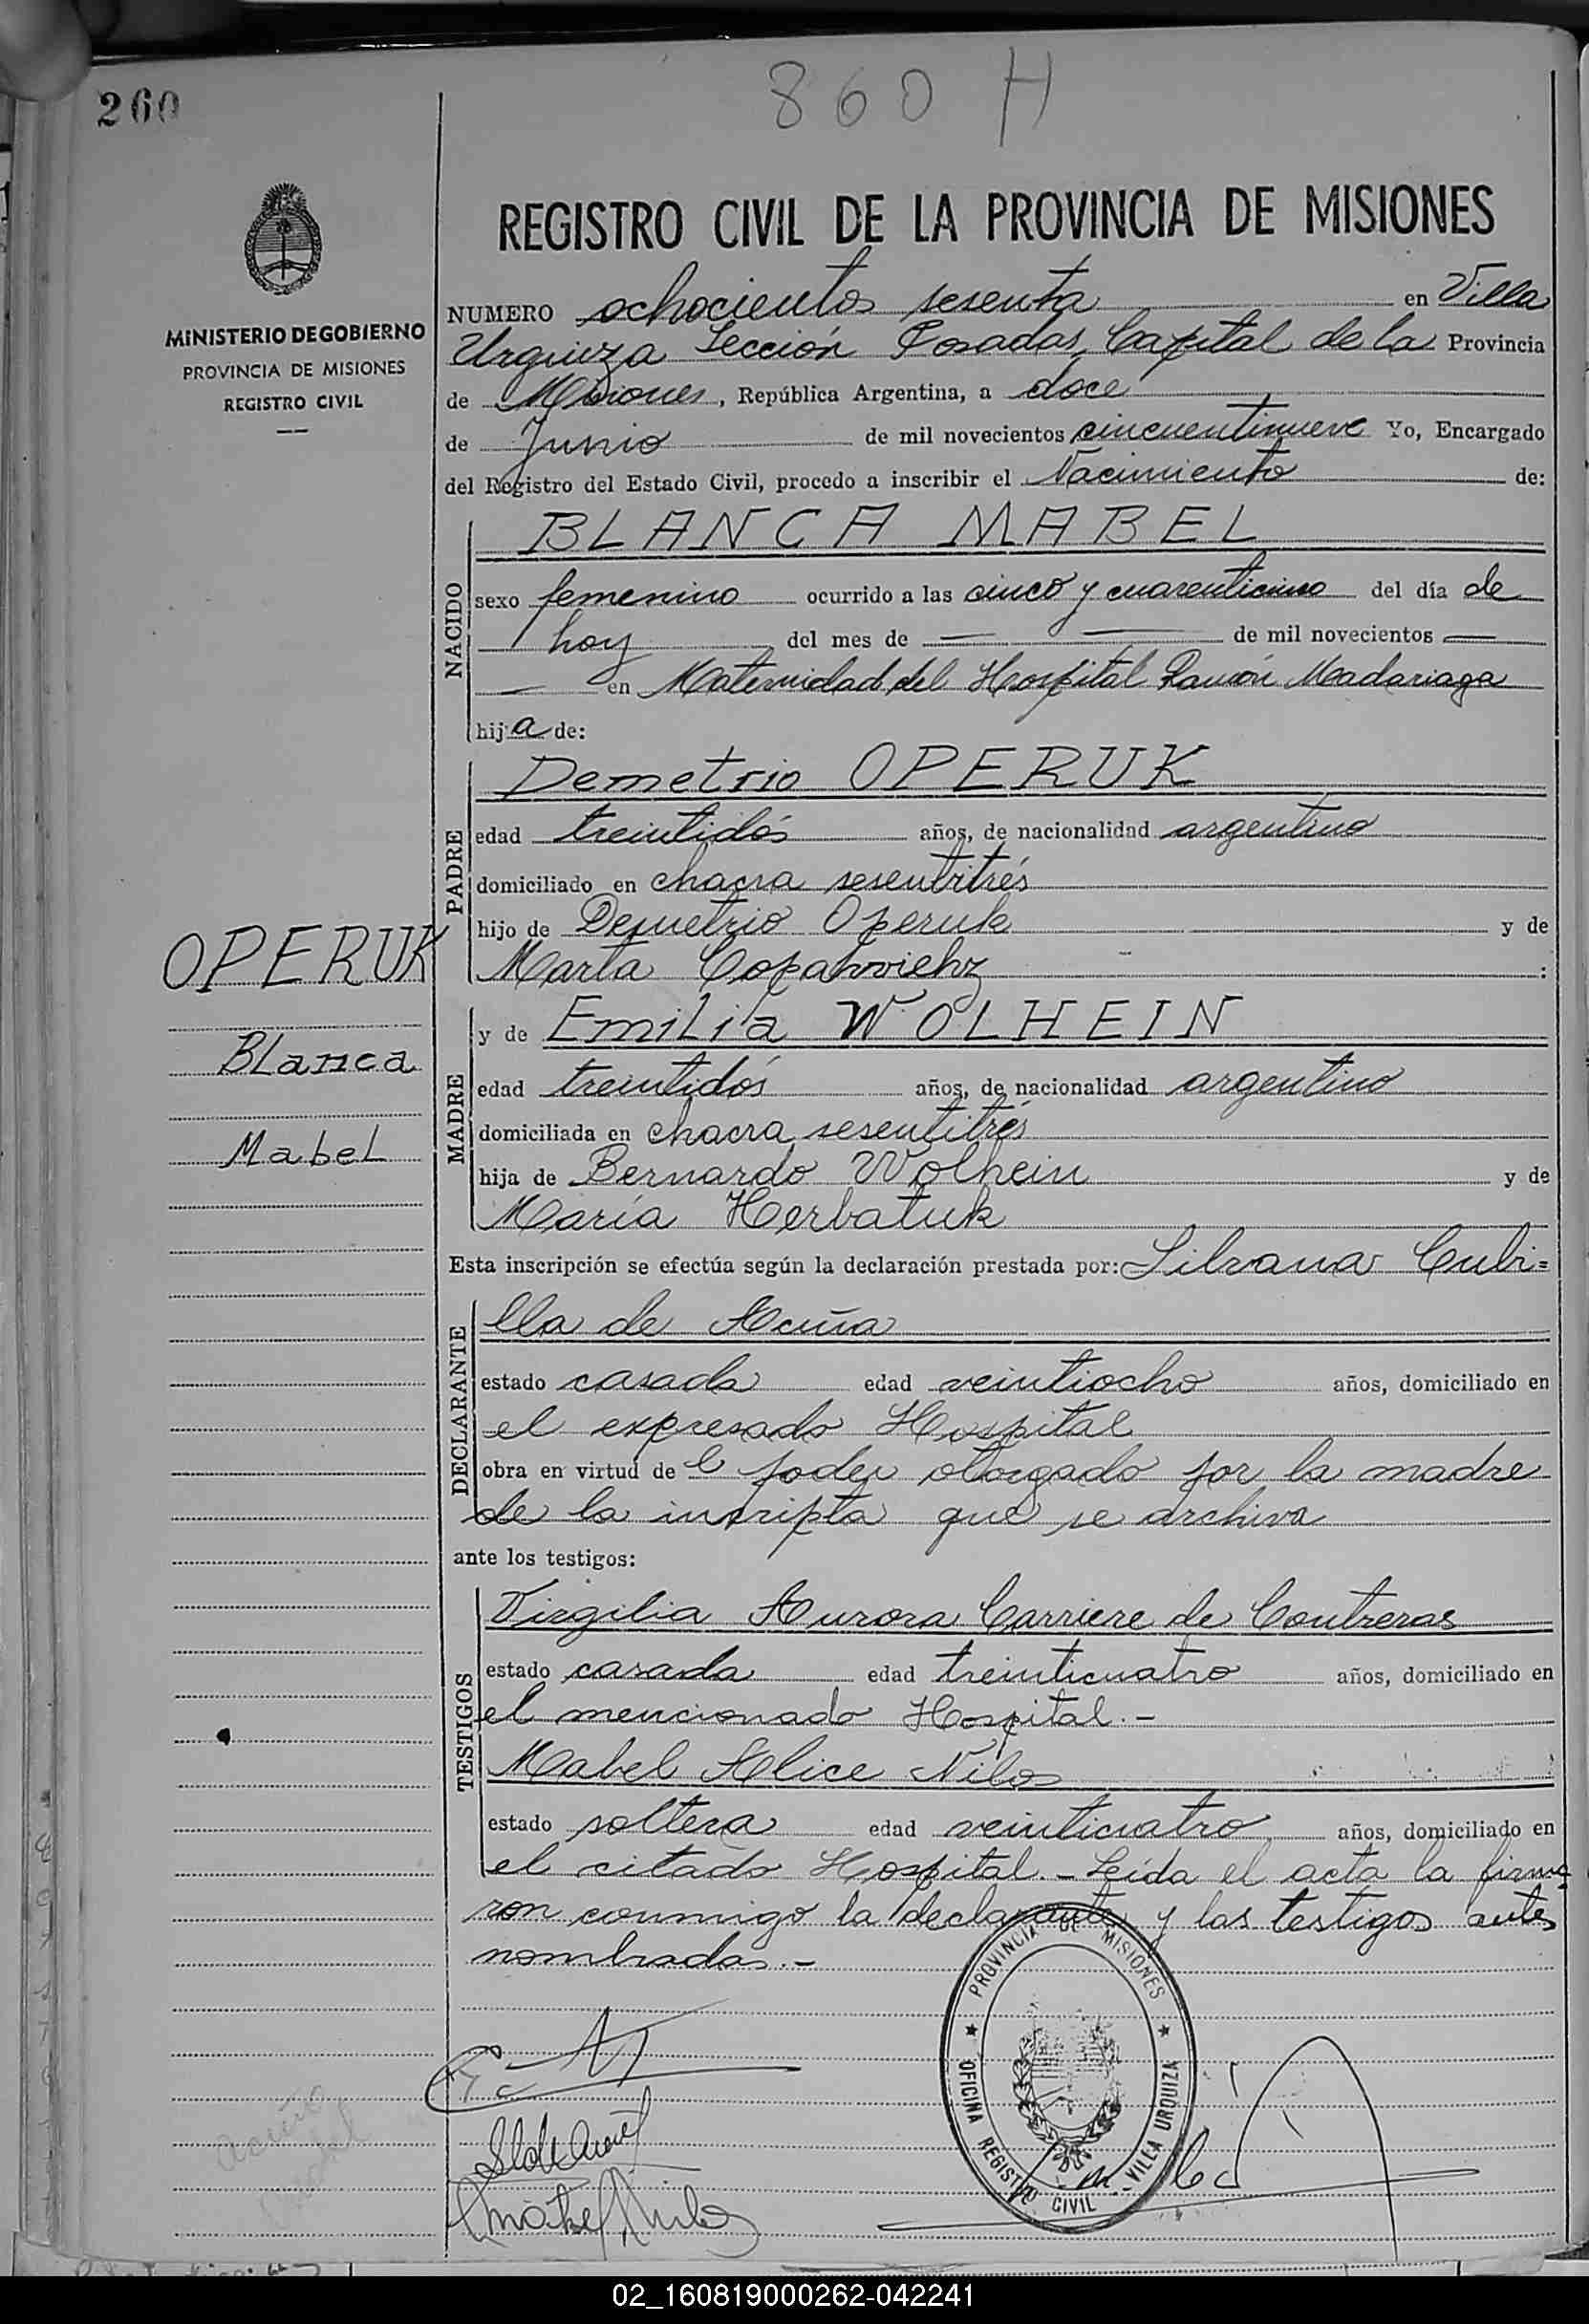 260
860 H
REGISTRO CIVIL DE LA PROVINCIA DE MISIONES
MINISTERIO DE GOBIERNO
PROVINCIA DE MISIONES
REGISTRO CIVIL
NUMERO ochocientos sesenta en Villa
Urquiza Sección Posadas, Capital de la Provincia
de Misiones, República Argentina, a doce
de Junio de mil novecientos cincuentinueve Yo, Encargado
del Registro del Estado Civil, procedo a inscribir el Nacimiento de:
NACIDO
BLANCA MABEL
sexo femenino ocurrido a las cinco y cuarenticinco del día de
hoy del mes de — — de mil novecientos —
— en Maternidad del Hospital Ramón Madariaga
hija de:
PADRE
Demetrio OPERUK
edad treintidós años, de nacionalidad argentino
domiciliado en chacra sesentitrés
hijo de Demetrio Operuk y de
Marta :
OPERUK
Blanca
Mabel
MADRE
y de Emilia WOLHEIN
edad treintidós años, de nacionalidad argentino
domiciliada en chacra sesentitrés
hija de Bernardo Wolhein y de
María Herbatuk
Esta inscripción se efectúa según la declaración prestada por: Silvana Cubi=
DECLARANTE
lla de Acuña
estado casada edad veintiocho años, domiciliado en
el expresado Hospital
obra en virtud de l poder otorgado por la madre
de la inscripta que se archiva
ante los testigos:
TESTIGOS
Virgilia Aurora Carriere de Contreras
estado casada edad treinticuatro años, domiciliado en
el mencionado Hospital.-
Mabel Alice Nilos
estado soltera edad veinticuatro años, domiciliado en
el citado Hospital.- Leída el acta la firma
ron conmigo la declarante y los testigos antes
nombrados.-
PROVINCIA DE MISIONES
OFICINA REGISTRO CIVIL - VILLA URQUIZA
02_160819000262-042241